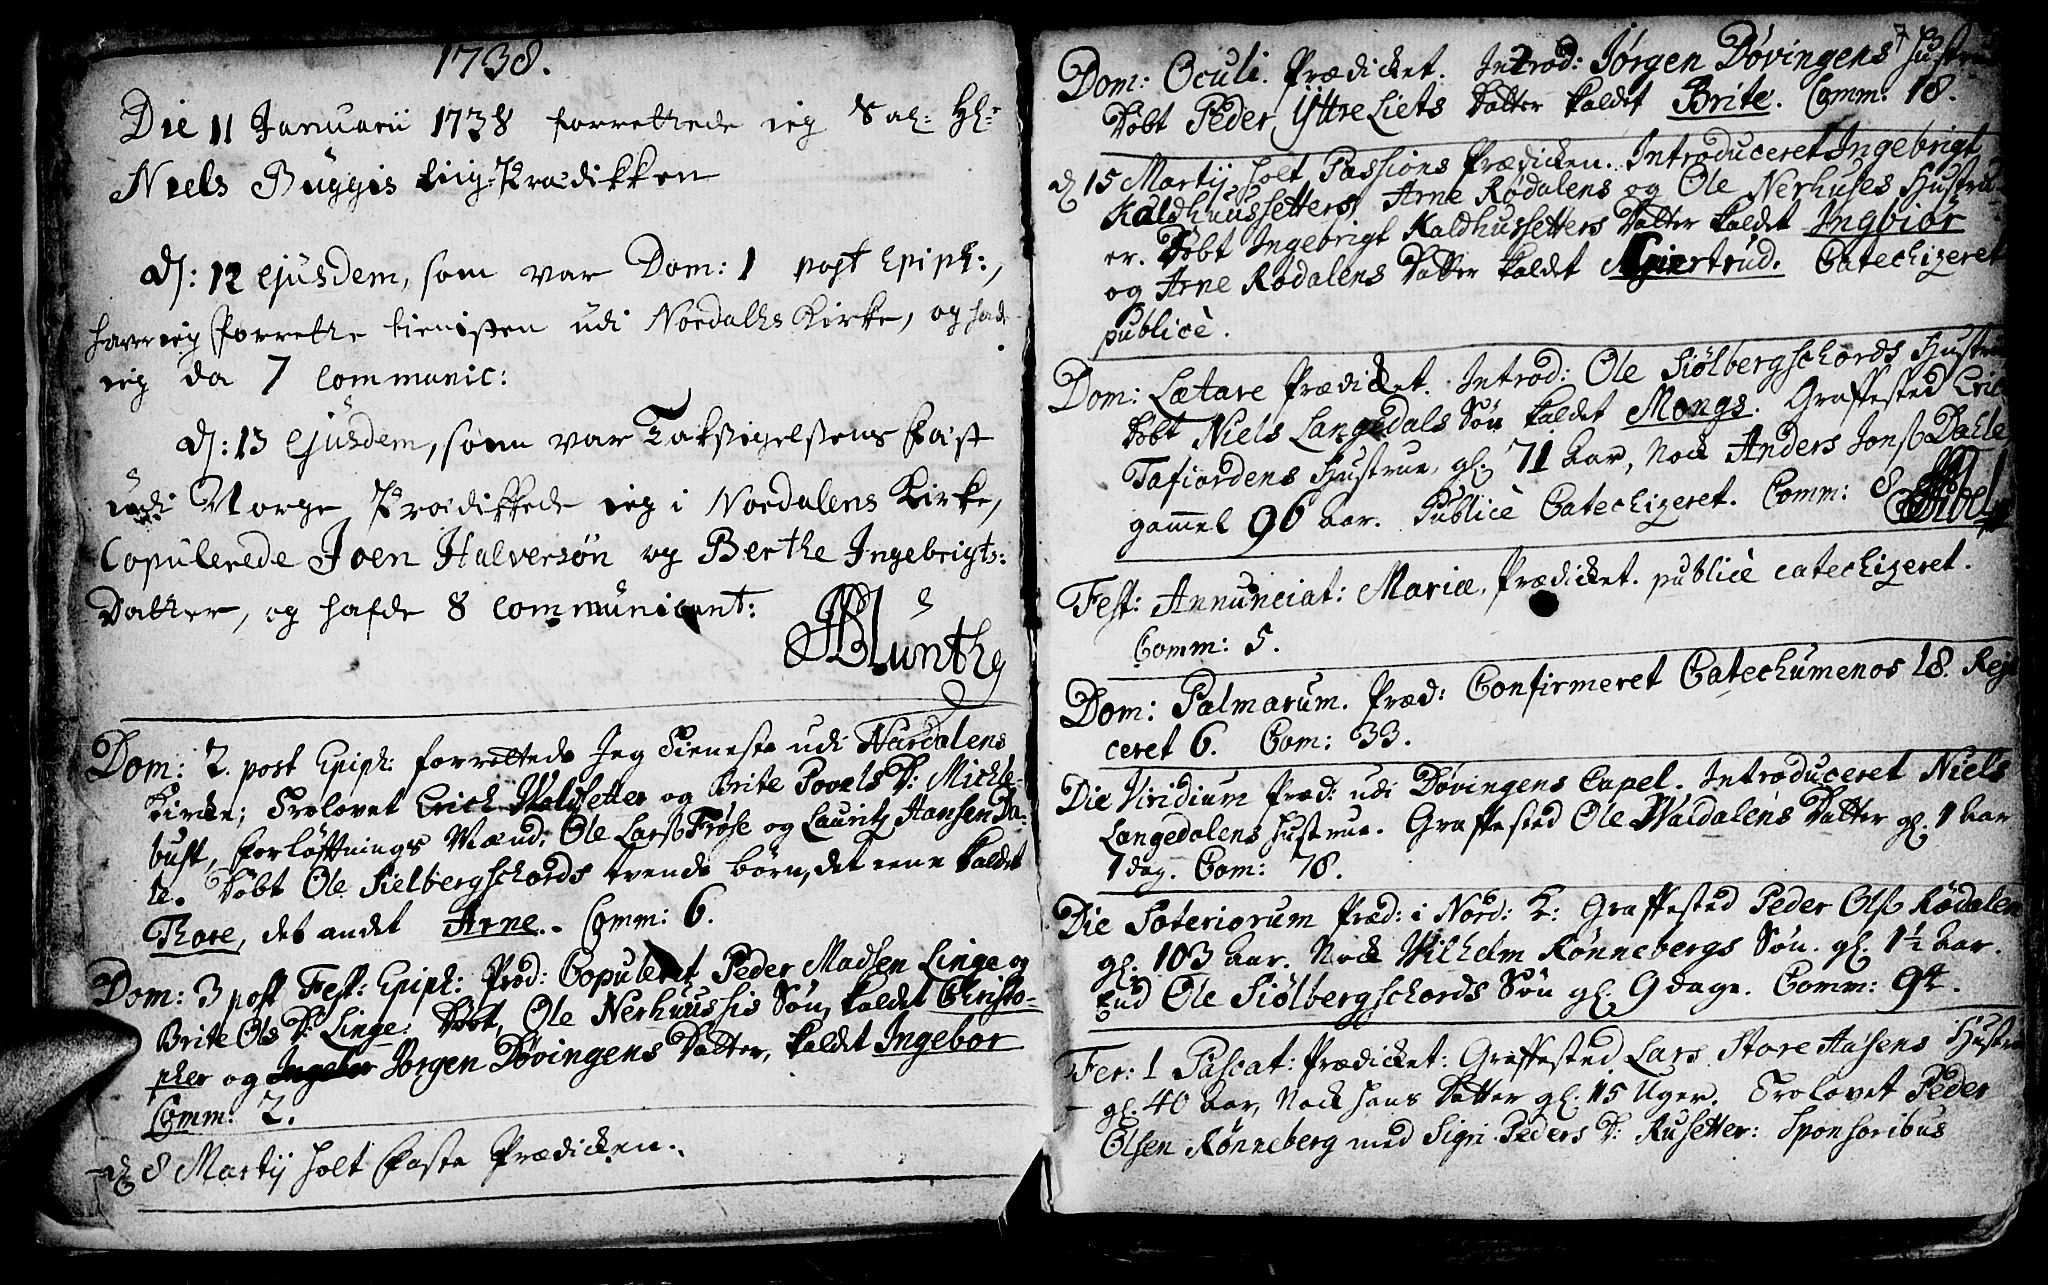 1738.
Die 11 Januarii 1738 forrettede ieg Sal: Hl:
Niels Buggis Liig-Prædikken
d: 12 ejusdem, som var Dom: 1 post Epiph:,
haver ieg forrette tienisten udi Nordalhs Kirke, og had
ieg da 7 communic:
d: 13 ejusdem, som var Taksigelsens fæst
udi Norge Prædikkede ieg i Nordalens Kirke,
Copulerede Joen Halversøn og Berthe Ingebrigts:
Datter, og hafde 8 communicant:
Munthe
Dom: 2. post Epiph: forrettede Jeg Tieneste udi Nurdalens
Kirke; Trolovet Erich Waldsetter og Brite Povels D: Mickle-
bust, forløftnings Mænd: Ole Larsß Frøse og Lauritz Hansen Da-
le. Døbt Ole Sielbergschords tvende børn, det eene kaldet
Thore, det andet Arne. Comm: 6.
Dom: 3 post Fest: Epiph: Præd: Copuleret Peder Madsen Linge og
Brite Ols D: Linge: Døbt, Ole Nerhuussis Søn, kaldet Christo-
pher og Jørgen Døvingens Datter, kaldet Ingebor
Comm: 2.
d. 8 Martij holt Faste Prædicken.
7
Dom: Oculi. Prædicket. Introd: Jørgen Døvingens Hustru
Døbt Peder YttreLiets Datter kaldet Brite. Comm: 18.
d. 15 Martij holt Passions Prædicken. Introduceret Ingebrigt
Kaldhuussetters, Arne Rødalens og Ole Nerhuses Hustru-
er. Døbt Ingebrigt Kaldhussetters Datter kaldet Ingbiør
og Arne Rødalens Datter kaldet Giertrud. Catechizeret
publicè.
Dom: Lætare Prædicket. Introd: Ole Siølbergschords Hustrue
Døbt Niels Langedals Søn kaldet Mongs. Graffested Eric
Tafiordens Hustrue, gl. 71 Aar, Nock Anders Jonß Dahle
gammel 96 Aar. Publicè Catechizeret. Comm: 8
Fest: Annunciat: Mariæ, Prædicket. publicè catechizeret.
Comm: 5.
Dom: Palmarum. Præd: Confirmeret Catechumenos 18. Reji
ceret 6. Com: 33.
Die Viridium Præd: udi Døvingens Capel. Introduceret Niels
Langedalens Hustrue. Graffested Ole Waldalens Datter gl. 1 Aar
1 dag. Com: 78.
Die Soteriorum Præd: i Nord: K: Graffested Peder Olß Rødalen
gl. 103 Aar. Nock Wilhelm Rønnebergs Søn. gl. 1½ Aar.
End Ole Siølbergschords Søn gl. 9 dage. Comm: 94.
Fer: 1 Pascat: Prædicket: Graffested Lars Store Aasens Hustru
gl. 40 Aar, Nock hans Datter gl. 15 Uger. Trolovet Peder
Olsen Rønneberg med Sigri Peders D: Rusetter: Sponsoribus